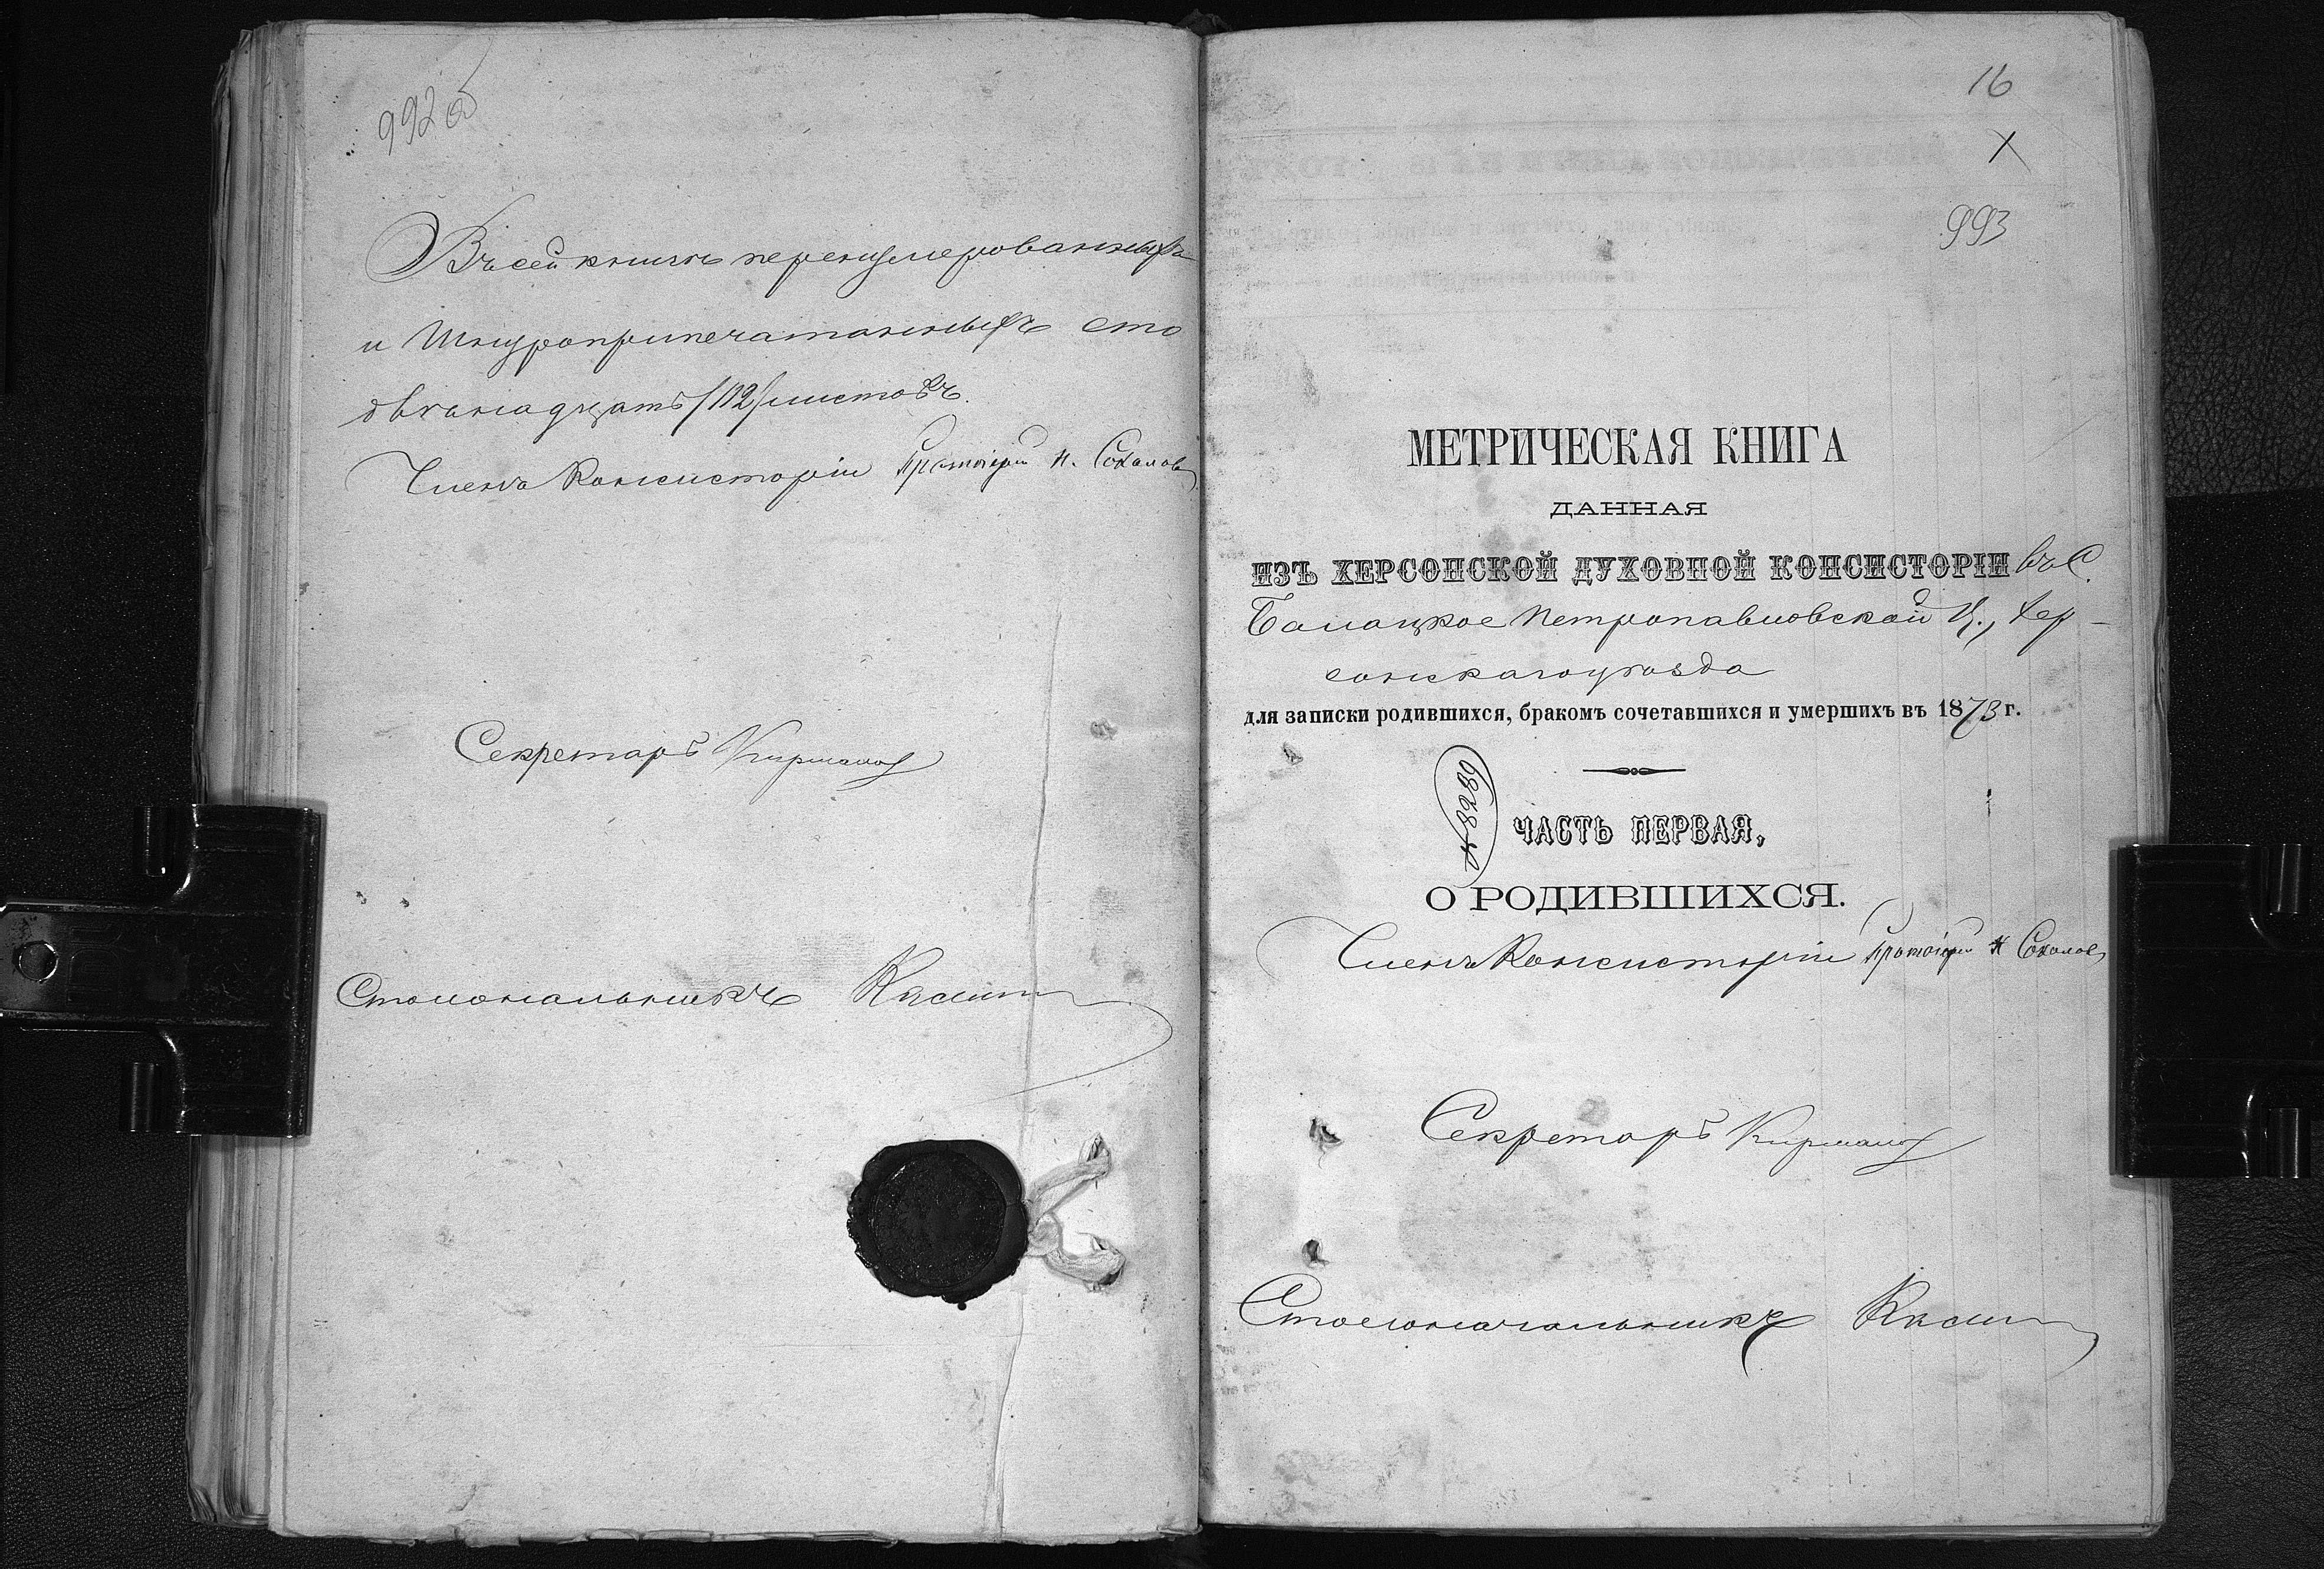 992 об
Въ сей книгѣ перенумерованныхъ
и шнуроприпечатанныхъ сто
двѣнадцать /112/ листовъ.
Членъ Консисторіи Протоіерей Н. Соколовъ
Секретарь
Столоначальникъ
16
993
МЕТРИЧЕСКАЯ КНИГА
ДАННАЯ
ИЗЪ ХЕРСОНСКОЙ ДУХОВНОЙ КОНСИСТОРІИ въ С.
Балацкое Петропавловской Ц., Хер-
сонскаго уѣзда
для записки родившихся, бракомъ сочетавшихся и умершихъ въ 1873 г.
ЧАСТЬ ПЕРВАЯ,
О РОДИВШИХСЯ.
Членъ Консисторіи Протоіерей Н Соколовъ
Секретарь
Столоначальникъ